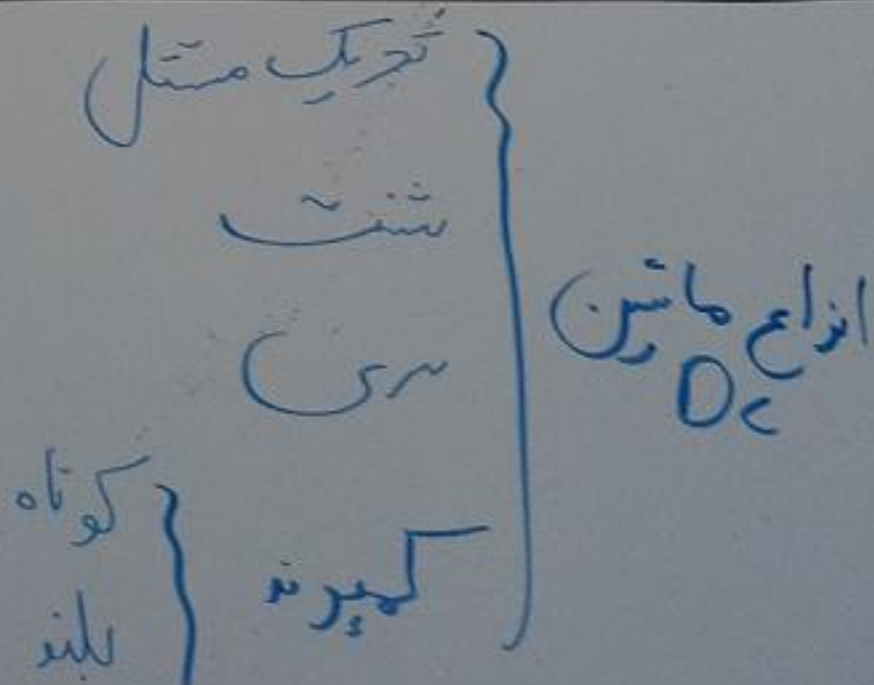 انواع ماشین
DC
تحریک مستقل
شنت
سری
کمپوند
کوتاه
بلند